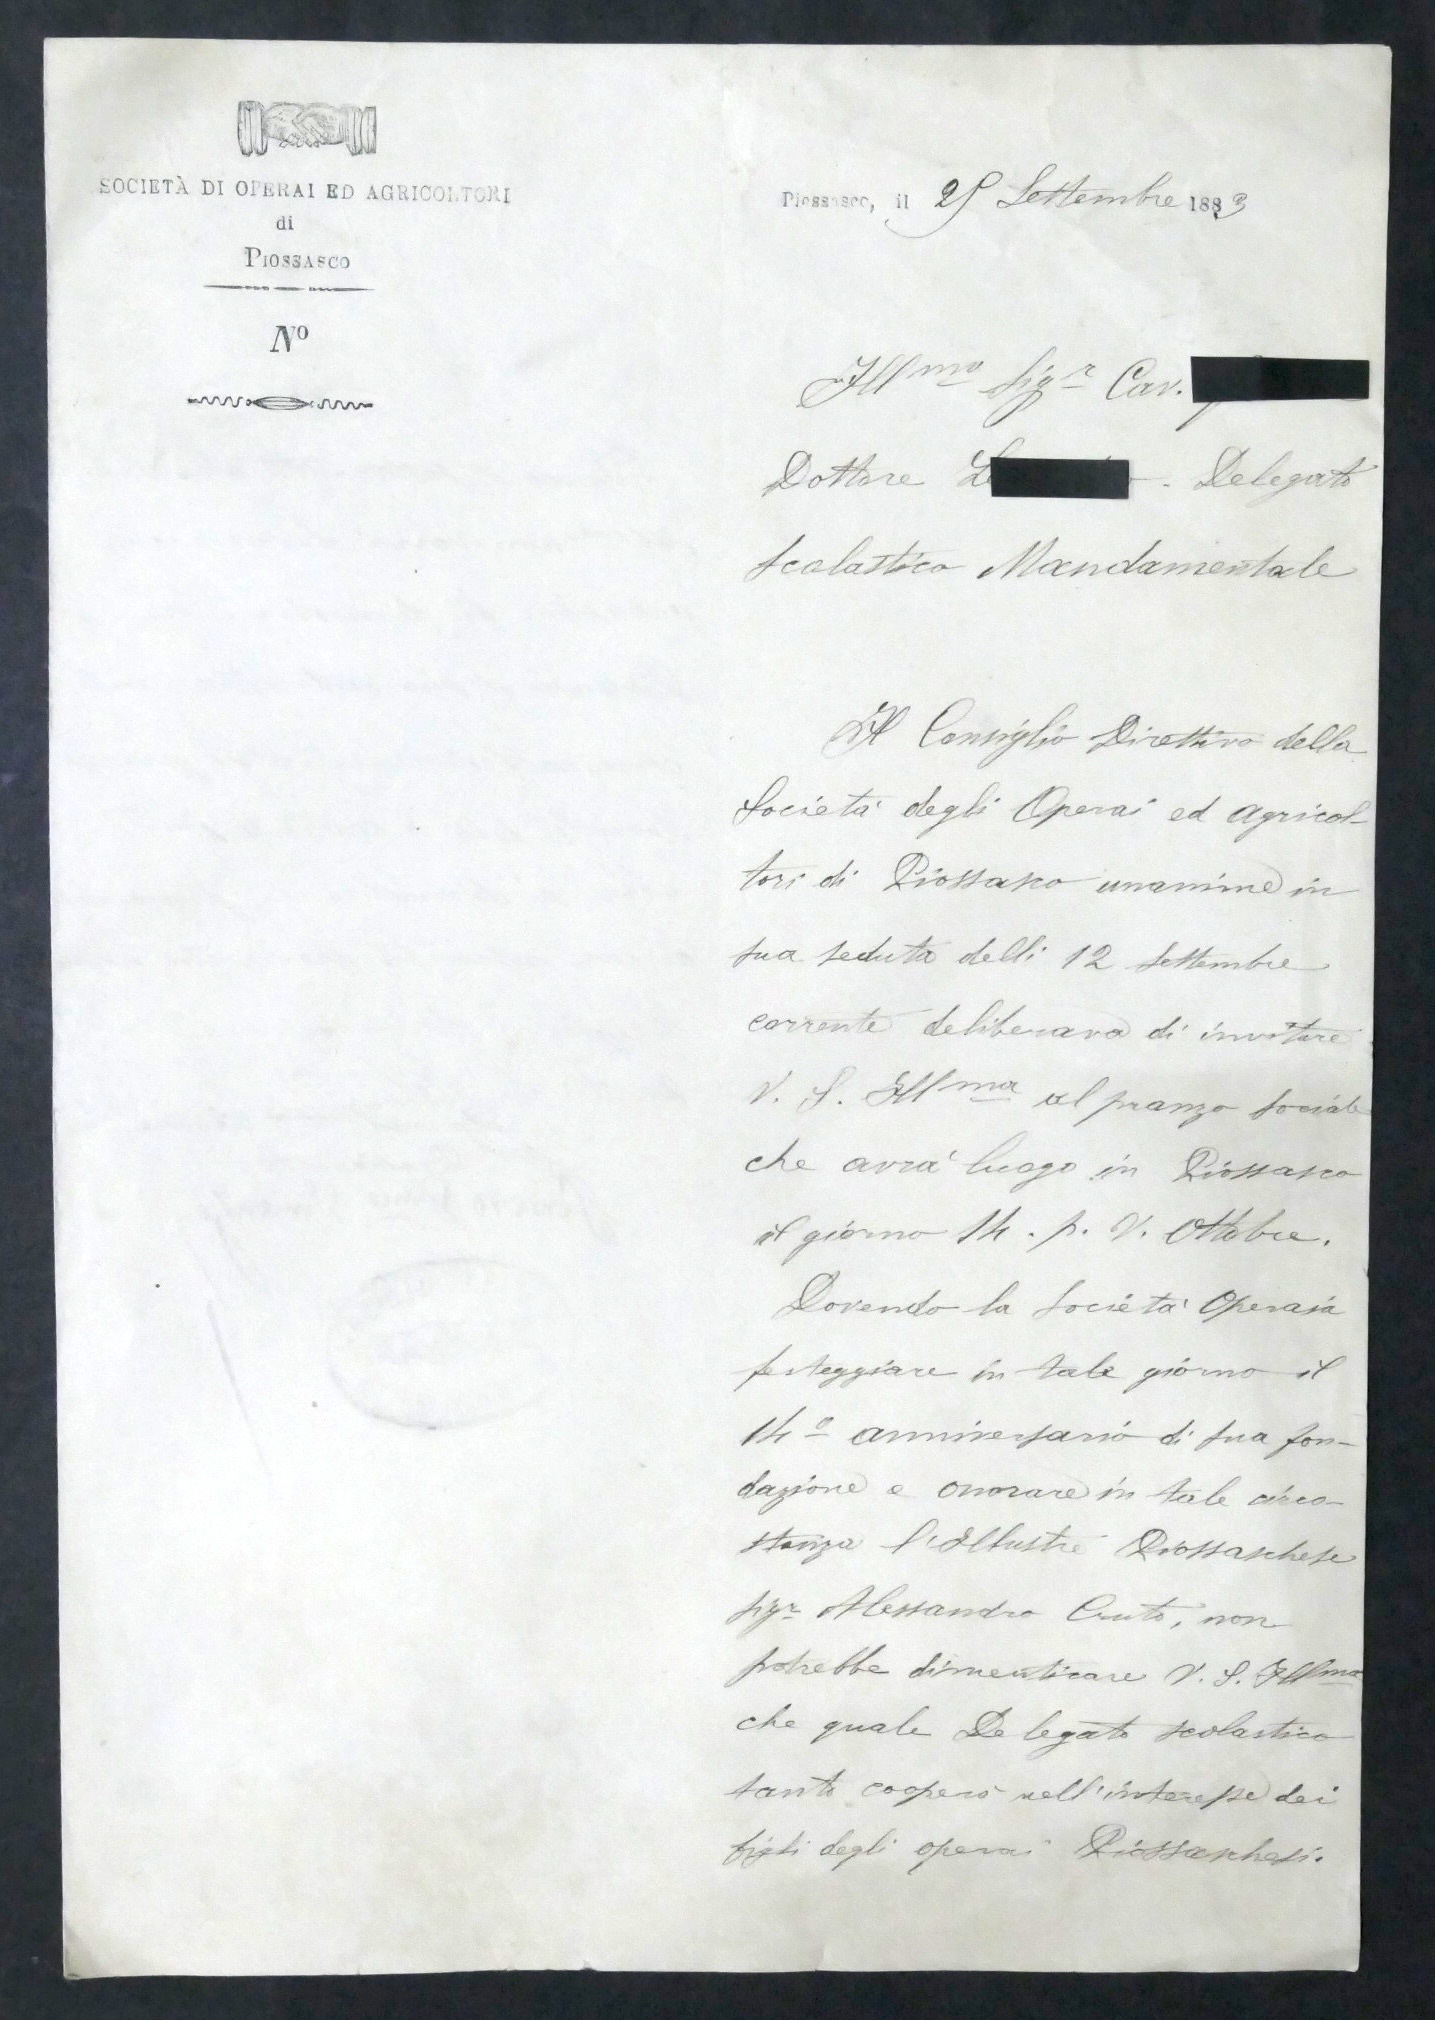 SOCIETÀ DI OPERAI ED AGRICOLTORI
di
PIOSSASCO
Nº
Piossasco, il 25 Settembre 1883
Illmo Sigr Cav.
Dottore Delegato
Scolastico Mandamentale
Il Consiglio Direttivo della
Società degli Operai ed Agricol-
tori di Piossasco unanime in
sua seduta delli 12 Settembre
corrente deliberava di invitare
V. S. Illma al pranzo sociale
che avrà luogo in Piossasco
il giorno 14. p. V. Ottobre.
Dovendo la Società Operaia
festeggiare in tale giorno il
14º anniversario di sua fon-
dazione e onorare in tale circo-
stanza l'Illustre Piossaschese
Sigr Alessandro Cruto, non
potrebbe dimenticare V. S. Illma
che quale Delegato scolastico
tanto cooperò nell'interesse dei
figli degli operai Piossaschesi.